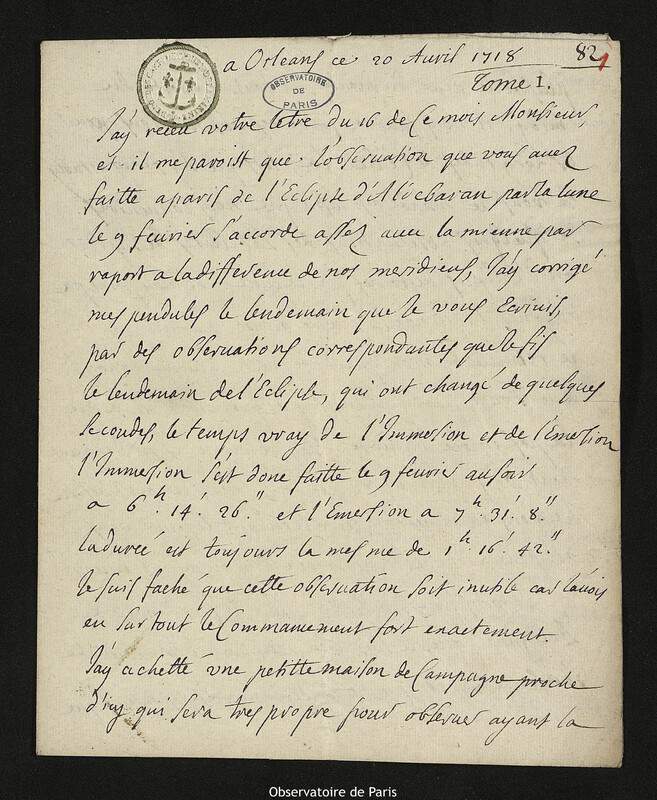 a Orleans ce 20 Avril 1718
82
Tome I.
OBSERVATOIRE
DE
PARIS
J'ay receu votre letre du 16 de ce mois Monsieur,
et il me paroist que l'observation que vous avez
faitte a paris de l'Eclipse d'Aldebaran par la lune
le 9 fevrier s'accorde assez avec la mienne par
raport a la difference de nos meridiens, J'ay corrigé
mes pendules le lendemain que Je vous Ecrivis,
par des observations correspondantes que Je fis
le lendemain de l'Eclipse, qui ont changé de quelques
secondes, le temps vray de l'Immersion et de l'Emersion
l'Immersion s'est donc faitte le 9 fevrier au soir
a 6h. 14'. 26." et l'Emersion a 7h. 31'. 8."
la dureé est toujours la mesme de 1h. 16'. 42."
Je suis faché que cette observation soit inutile car J'avois
eu sur tout le Commancement fort exactement.
J'ay achetté une petitte maison de Campagne proche
d'icy qui sera tres propre pour observer ayant la
Observatoire de Paris